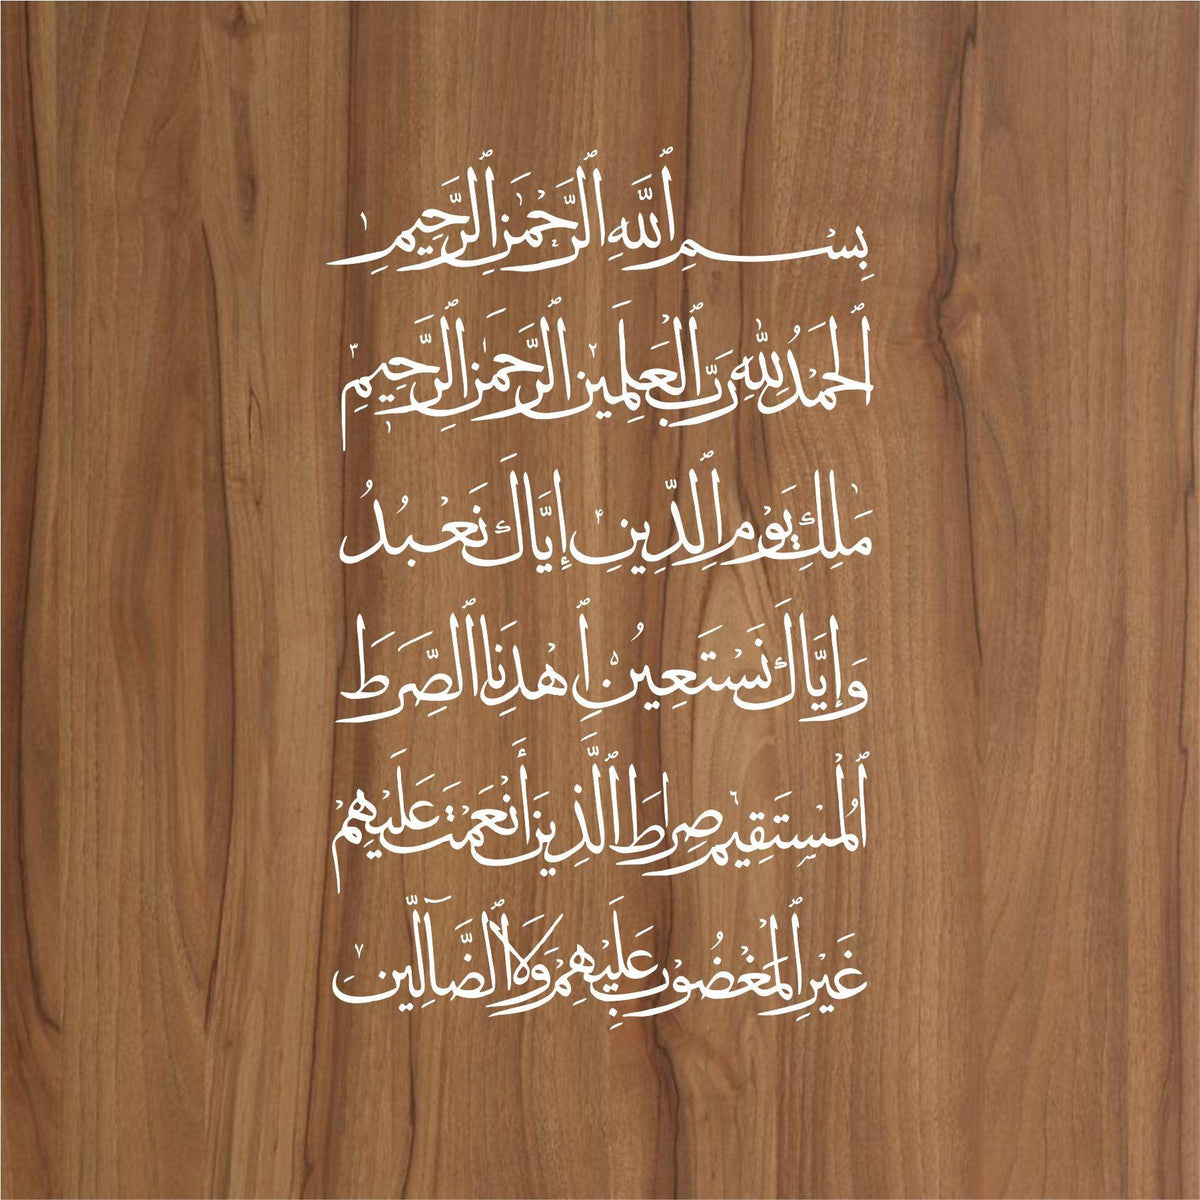 بِسْمِ ٱللَّهِ ٱلرَّحْمَٰنِ ٱلرَّحِيمِ ١
ٱلْحَمْدُ لِلَّهِ رَبِّ ٱلْعَٰلَمِينَ ٢ ٱلرَّحْمَٰنِ ٱلرَّحِيمِ ٣
مَٰلِكِ يَوْمِ ٱلدِّينِ ٤ إِيَّاكَ نَعْبُدُ
وَإِيَّاكَ نَسْتَعِينُ ٥ ٱهْدِنَا ٱلصِّرَٰطَ
ٱلْمُسْتَقِيمَ ٦ صِرَاطَ ٱلَّذِينَ أَنْعَمْتَ عَلَيْهِمْ
غَيْرِ ٱلْمَغْضُوبِ عَلَيْهِمْ وَلَا ٱلضَّآلِّينَ ٧